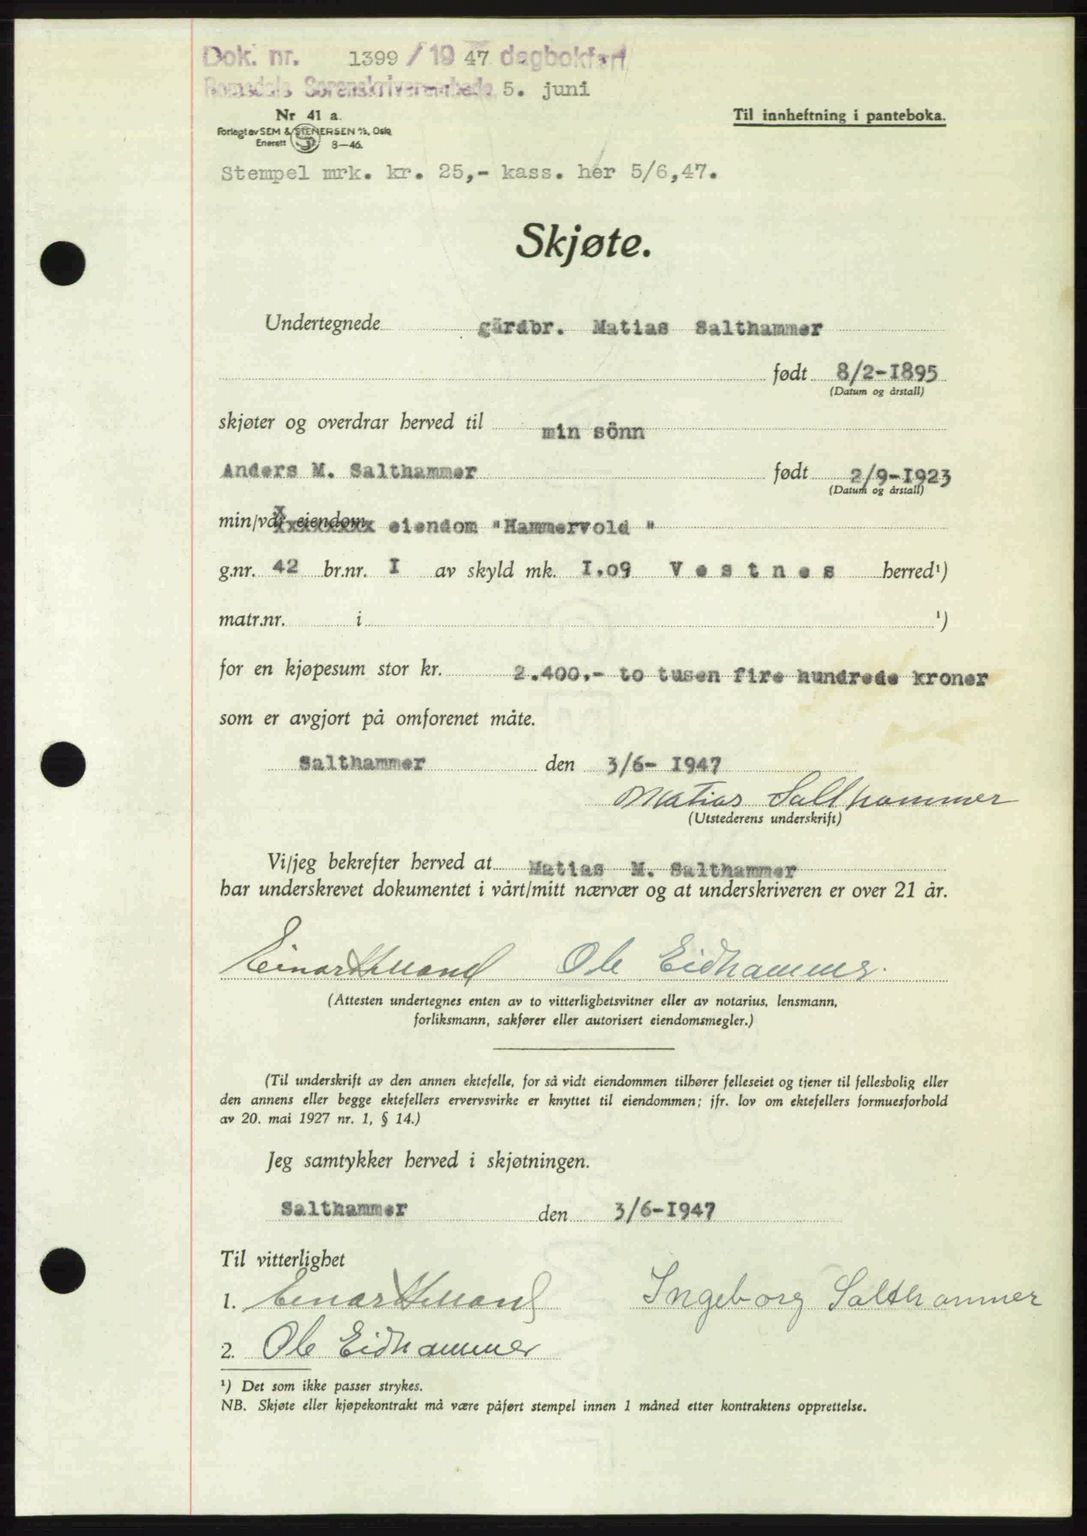 Dok. nr. 1399 / 19 47 dagbokført
Romsdals Sorenskriverembede 5. juni
Nr 41 a.
Til innheftning i panteboka.
Forlagt av SEM & STENERSEN A/S, Oslo
Enerett 8—46.
Stempel mrk. kr. 25,- kass. her 5/6,47.
Skjøte.
Undertegnede gårdbr. Matias Salthammer
født 8/2-1895
(Datum og årstall)
skjøter og overdrar herved til min sönn
Anders M. Salthammer født 2/9-1923
(Datum og årstall)
min/vår eiendom eiendom "Hammervold "
g.nr. 42 br.nr. I av skyld mk. I.09 Vestnes herred¹)
matr.nr. i ¹)
for en kjøpesum stor kr. 2.400,- to tusen fire hundrede kroner
som er avgjort på omforenet måte.
Salthammer den 3/6- 1947
Matias Salthammer
(Utstederens underskrift)
Vi/jeg bekrefter herved at Matias M. Salthammer
har underskrevet dokumentet i vårt/mitt nærvær og at underskriveren er over 21 år.
Einar Ole Eidhammer.
(Attesten undertegnes enten av to vitterlighetsvitner eller av notarius, lensmann,
forliksmann, sakfører eller autorisert eiendomsmegler.)
(Til underskrift av den annen ektefelle, for så vidt eiendommen tilhører felleseiet og tjener til fellesbolig eller
den annens eller begge ektefellers ervervsvirke er knyttet til eiendommen; jfr. lov om ektefellers formuesforhold
av 20. mai 1927 nr. 1, § 14.)
Jeg samtykker herved i skjøtningen.
Salthammer den 3/6-1947
Til vitterlighet
1. Einar Ingeborg Salthammer
2. Ole Eidhammer
¹) Det som ikke passer strykes.
NB. Skjøte eller kjøpekontrakt må være påført stempel innen 1 måned etter kontraktens opprettelse.